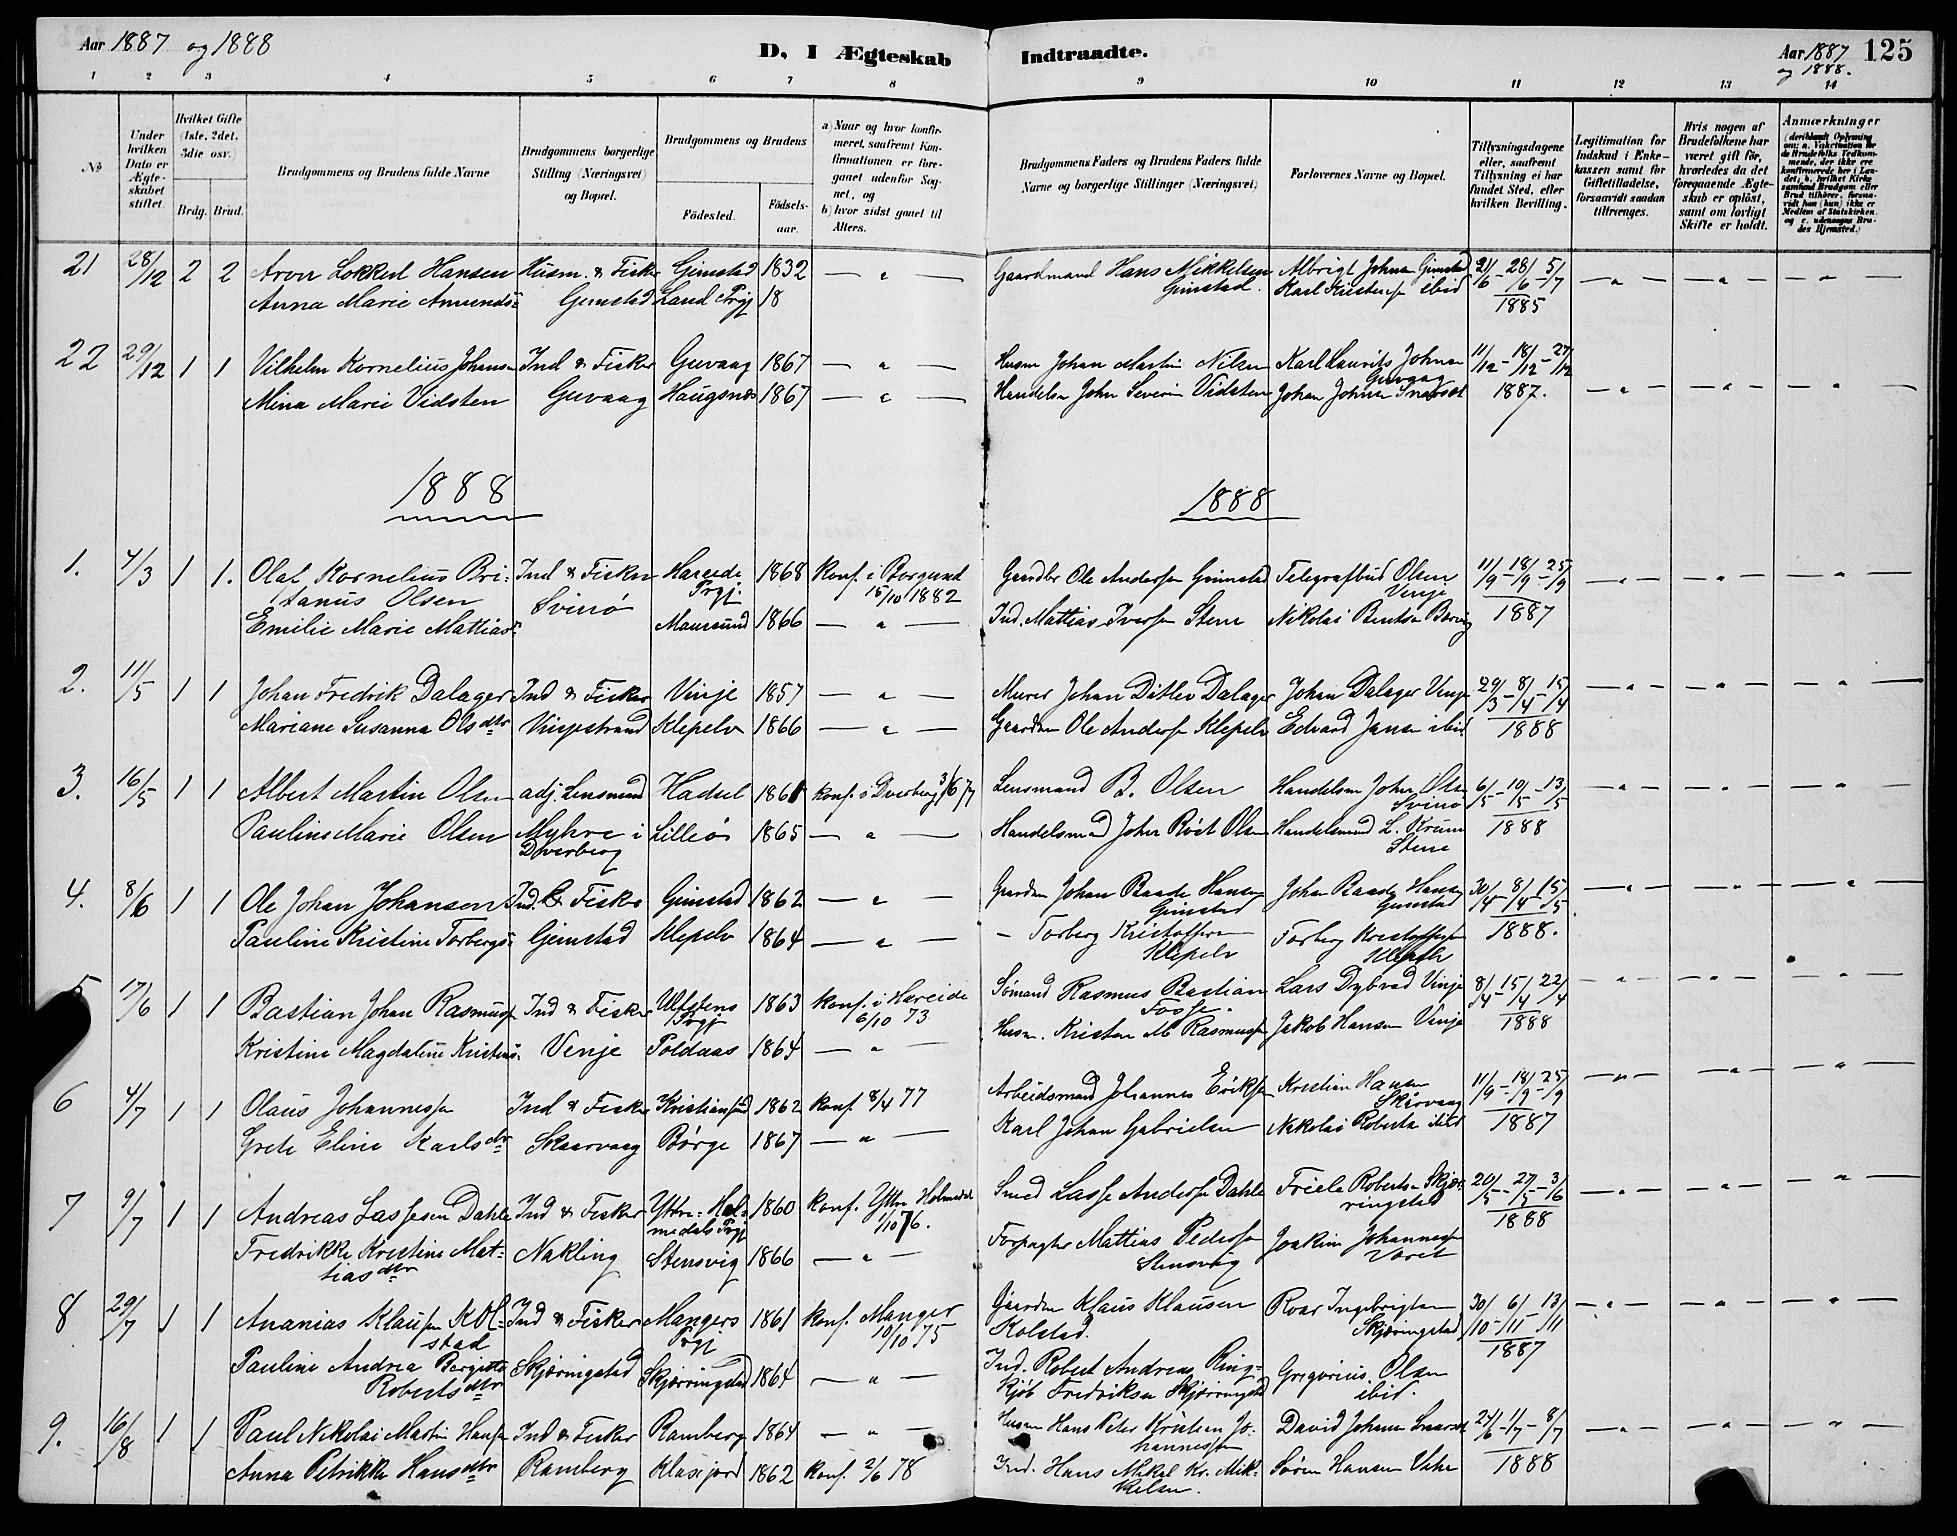 Aar 1887 og 1888
D, I Ægteskab Indtraadte.
Aar 1887 og 1888.
125
1 2 3 4 5 6 7 8 9 10 11 12 13 14
No
Under hvilken Dato er Ægteskabet stiftet.
Hvilket Gifte (1ste, 2det, 3die osv.)
Brdg. Brud.
Brudgommens og Brudens fulde Navne
Brudgommens borgerlige Stilling (Næringsvei) og Bopæl.
Brudgommens og Brudens
Födested.
Födselsaar.
a) Naar og hvor konfirmeret, saafremt Konfirmationen er foregaaet udenfor Sognet, og
b) hvor sidst gaaet til Alters.
Brudgommens Faders og Brudens Faders fulde Navne og borgerlige Stillinger (Næringsvei)
Forlovernes Navne og Bopæl.
Tillysningsdagene eller, saafremt Tillysning ei har fundet Sted, efter hvilken Bevilling.
Legitimation for Indskud i Enkekassen samt for Giftetilladelse, forsaavidt saadan tiltrænges.
Hvis nogen af Brudefolkene har været gift för, hvorledes da det foregaaende Ægteskab er oplöst, samt om lovligt Skifte er holdt.
Anmærkninger
(deriblandt Oplysning om: a. Vakcination for de Brudefolks Vedkommende, der ikke ere konfirmerede her i Landet; b. hvilket Kirkesamfund Brudgom eller Brud tilhörer, forsaavidt han (hun) ikke er Medlem af Statskirken, og c. udensogns Brudes Hjemsted.)
21 28/12 2 2 Aron Lokkert Hansen Husm. & Fisker Gimstad 1832 Gaardmand Hans Mikkelsen Gimstad. Albrigt Johnsen Gimstad 21/6 - 28/6 - 5/7
Anna Marie Amunds- Gimstad Land Prgj 18 Karl Kristensen ibid 1885
22 29/12 1 1 Vilhelm Kornelius Johansen Ind & Fisker Guvaag 1867 Husm Johan Martin Nilsen Karl Laurits Johnsen Guvaag 11/12 - 18/12 - 27/12
Mina Marie Vidsten Guvaag Haugsnes 1867 Handelsm John Severin Vidsten Johan Johnsen 1887.
1888 1888
1. 4/3 1 1. Olaf Kornelius Bri- Ind & Fisker Hareide Prgj. 1868 Konf. i Borgund 15/10 1882 Gaardbr Ole Andersen Grimstad Telegrafbud Olsen Vinje 11/9 - 18/9 - 25/9
tanus Olsen Svinö
Emilie Marie Mattias- Maursund 1866 Ind. Mattias Iversen Stene Nikolai Bentsen 1887
2. 11/5 1 1 Johan Fredrik Dalager Ind & Fisker Vinje 1857 Murer Johan Ditlev Dalager Johan Dalager Vinje 29/3 - 8/4 - 15/4
Mariane Susanna Olsdtr Vinjestrand Klepelv 1866 Gaardm Ole Andersen Klepelv Edvard Jensen ibid 1888
3. 16/5 1 1 Albert Martin Olsen adj. Lensmand Hadsel 1861 Konf. i Dverberg Lensmand B. Olsen Handelsm John Olsen Svinö 6/5 - 10/5 - 13/5
Pauline Marie Olsen Myhre i Dverberg Lilleö 1865 Handelsmand John Röst Olsen Handelsmand L. Krum Stene 1888
4. 8/6 1 1 Ole Johan Johansen Ind. & Fisker Gimstad 1862 Gaardm Johan Baade Hansen Gimstad Johan Baade Hansen Gimstad 30/4 - 8/4 - 15/5
Pauline Kristine Torbergs- Gimstad Klepelv 1864 - Torberg Kristoffersen Klepelv Torberg Kristoffersen Klepelv 1888.
5 17/6 1 1 Bastian Johan Rasmussen Ind & Fisker Ulfstens Prgj 1863 Konf. i Hareide 6/10 73 Sömand Rasmus Bastian Fosse. Lars Dybvad Vinje 8/4 - 15/4 - 22/4
Kristine Magdaline Kristens- Venje Poldaas 1864 Husm. Kristen M Rasmussen Jakob Hansen Vinje 1888
6 4/7 1 1 Olaus Johannessen Ind & Fisker Kristiansund 1862 Konf. 8/4 77 Arbeidsmand Johannes Eriksen Kristian Hansen Skårvaag 11/9 - 18/9 - 25/9
Grete Eline Karlsdtr Skaarvaag Börge 1867 Karl Johan Gabrielsen Nikolai Robertsen ibid 1887
7 9/7 1 1 Andreas Lassesen Dahle Ind & Fisker Yttre-Holmedals Prgj 1860 Konf. Yttre Holmedal 1/10 76. Smed Lasse Andersen Dahle Friele Robertsen Skjærringstad 20/5 - 27/5 - 3/6
Fredrikke Kristine Mat- Nakling Stensvig 1866 Forpagter Mattias Pedersen Stensvig Joakim Johannessen 1888
tiasdtr
8 29/7 1 1 Ananias Klausen Kol- Ind & Fisker Mangers Prgj 1861 Konf. Manger 10/10 75 Gaardm Klaus Klausen Kolstad. Roar Ingebrigtsen Skjæringstad 30/10 - 6/11 - 13/11
stad 1887
Pauline Andrea Bergitte Skjæringstad Skjærringstad 1864 Ind. Robert Andreas Ring- Gregorius Olsen ibid.
Robertsdtr kjöb Fredriksen Skjærringstad
9. 16/8 1 1 Paul Nikolai Martin Hansen Ind & Fisker Ramberg 1864 Husm Hans Peter Kristian Johannessen David Johansen 24/6 - 1/7 - 8/7
Anna Petrikke Hansdtr Ramberg Klasfjord 1862 Konf. 2/6 78 Ind. Hans Mikal Kr. Mikkelsen. Sören Hansen 1888